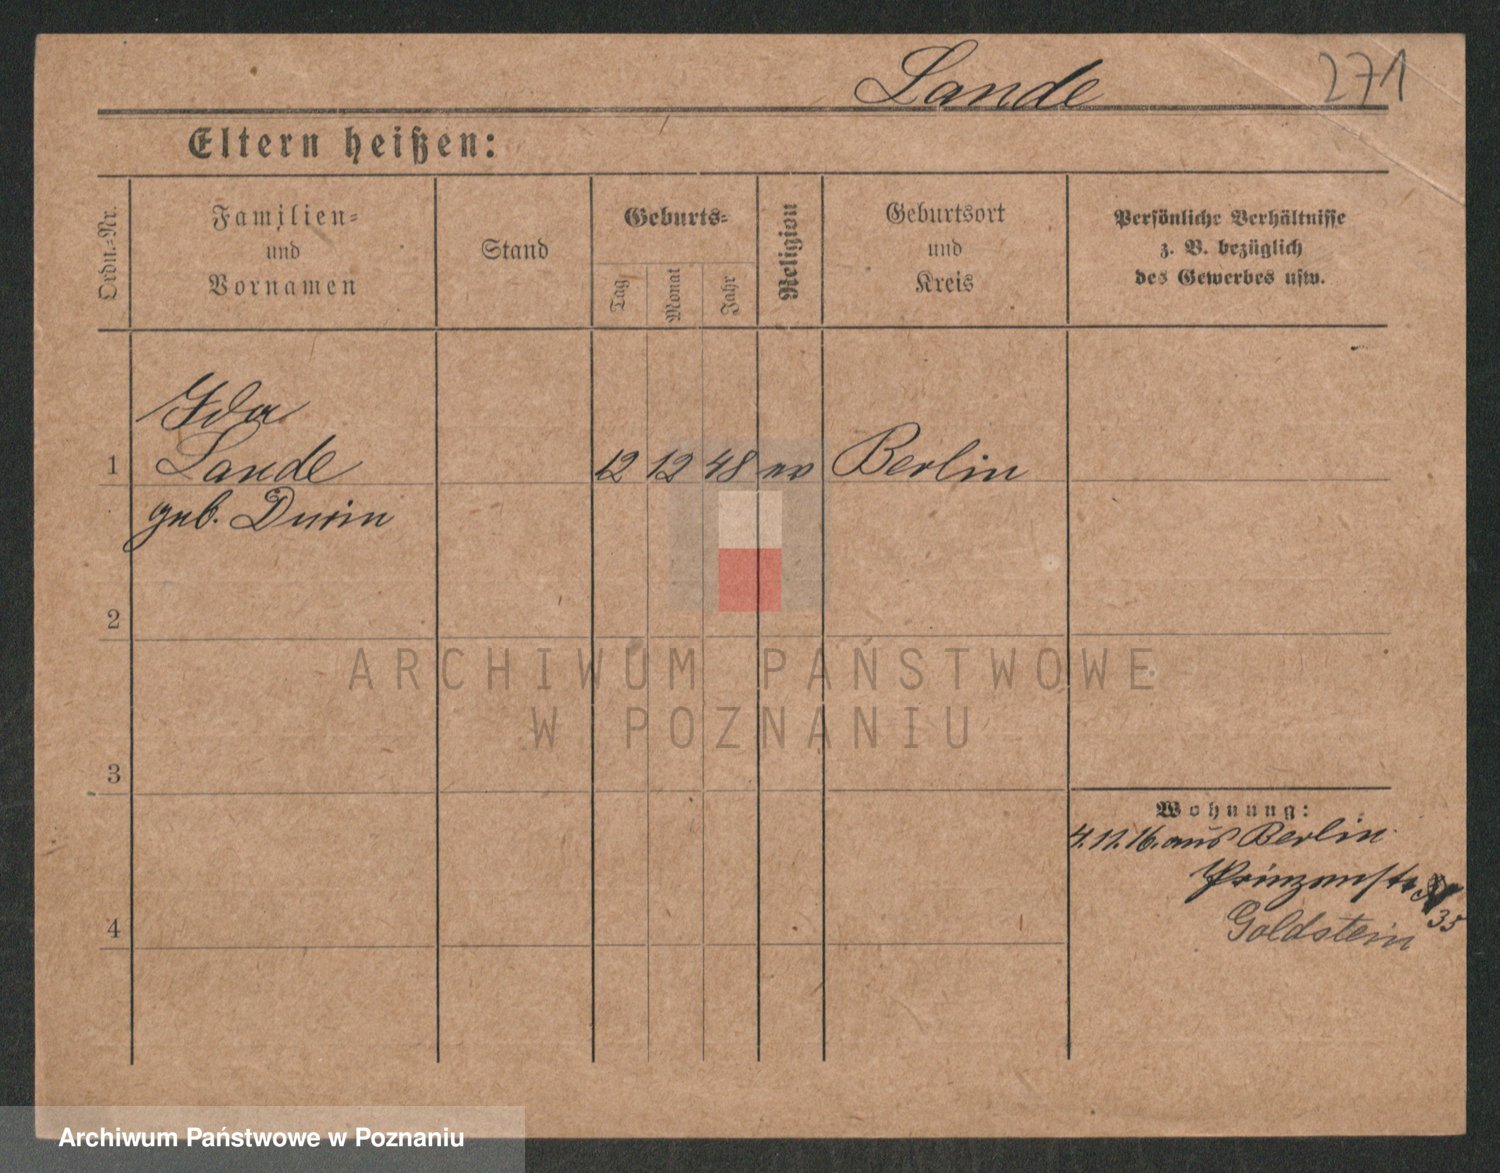 Lande
271
Eltern heißen:
Ordn.-Nr.
Familien-
und
Vornamen
Stand
Geburts-
Tag
Monat
Jahr
Religion
Geburtsort
und
Kreis
Persönliche Verhältnisse
z. B. bezüglich
des Gewerbes usw.
Ida
1 Lande 12 12 48 ev Berlin
geb.
2
ARCHIWUM PAŃSTWOWE
W POZNANIU
3
Wohnung:
4.11.16. aus Berlin
Prinzenstr
35
Goldstein
4
Archiwum Państwowe w Poznaniu